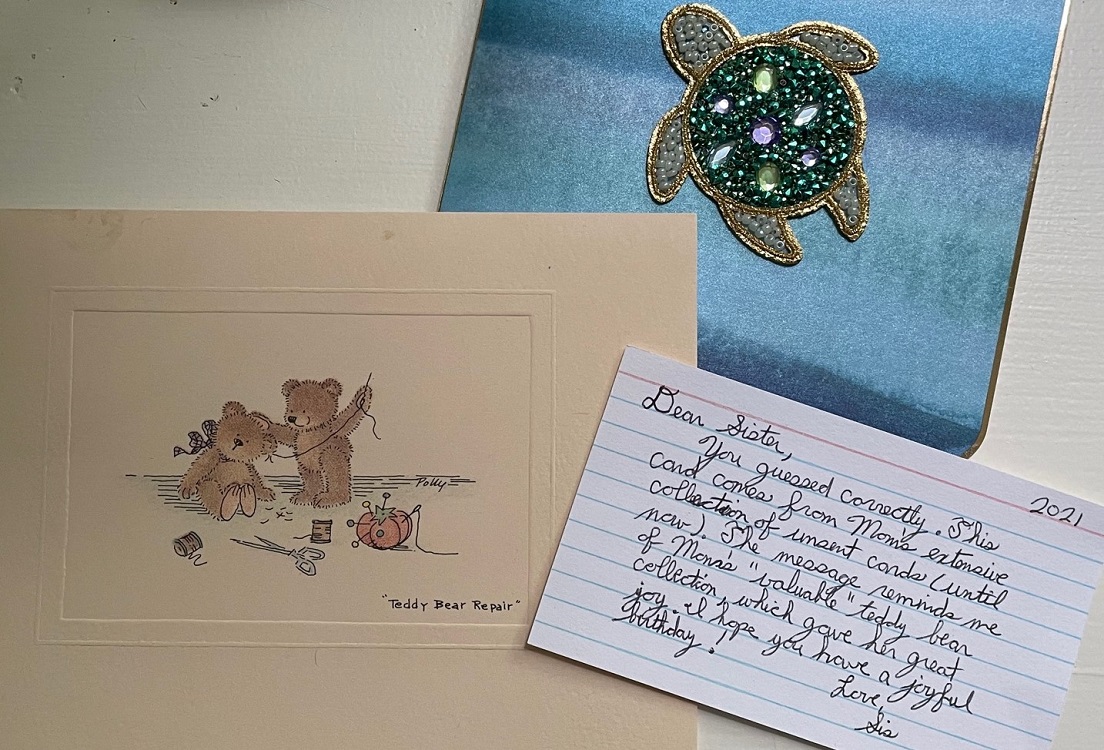 Polly
"Teddy Bear Repair"
2021
Dear Sister,
You guessed correctly. This
card comes from Mom's extensive
collection of unsent cards (until
now). The message reminds me
of Mom's "valuable" teddy bear
collection, which gave her great
joy. I hope you have a joyful
birthday!
Love,
Sis